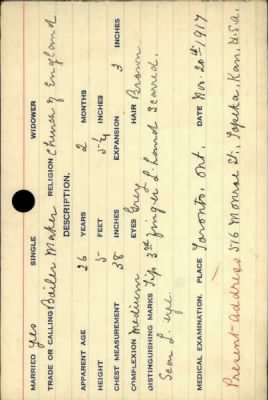 MARRIED yes SINGLE WIDOWER
TRADE OR CALLING Boiler Maker RELIGION Church of England
DESCRIPTION.
APPARENT AGE 26 YEARS 2 MONTHS
HEIGHT 5 FEET 5¼ INCHES
CHEST MEASUREMENT 38 INCHES EXPANSION 3 INCHES
COMPLEXION Medium EYES Grey HAIR Brown
DISTINGUISHING MARKS Tip 3rd finger L hand Scarred.
Scar L. eye.
MEDICAL EXAMINATION. PLACE Toronto, Ont. DATE Nov. 20th/1917
Present-address 516 Monroe St., Topeka, Kan, U.S.A.